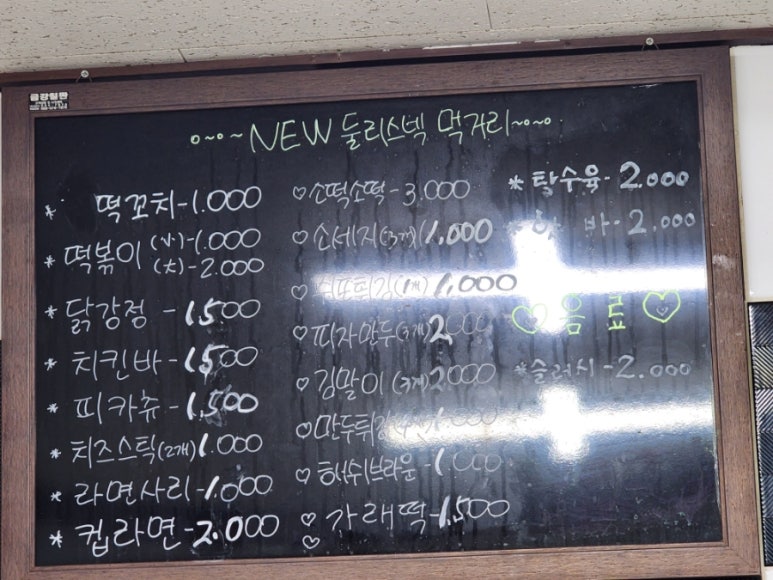 금강칠판
~~~NEW 둘리스넥 먹거리~~~
* 떡꼬치-1.000
* 떡볶이 (小)-1.000
(大)-2.000
* 닭강정 -1.500
* 치킨바-1.500
* 피카츄-1,500
* 치즈스틱(2개)1.000
* 라면사리-1.000
* 컵라면-2.000
♡소떡소떡-3.000
♡소세지(3개)1,000
♡쥐포튀김(1개)1,000
♡피자만두(3개)2,000
♡김말이(3개)2000
♡만두튀김 1.000
♡해쉬브라운-1,000
♡가래떡-1,500
♡
* 탕수육-2.000
* 바-2.000
♡음료♡
*슬러시-2.000